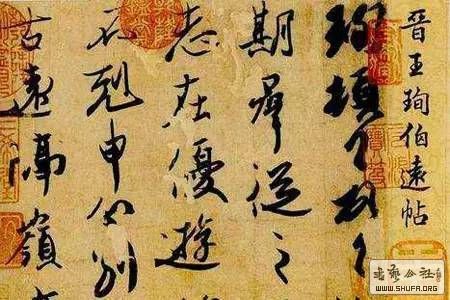 晉王珣伯遠帖
珣頓首頓首
期羣從之
志在優遊
不剋申分別
古遠隔嶺
书艺公社
WWW.SHUFA.ORG